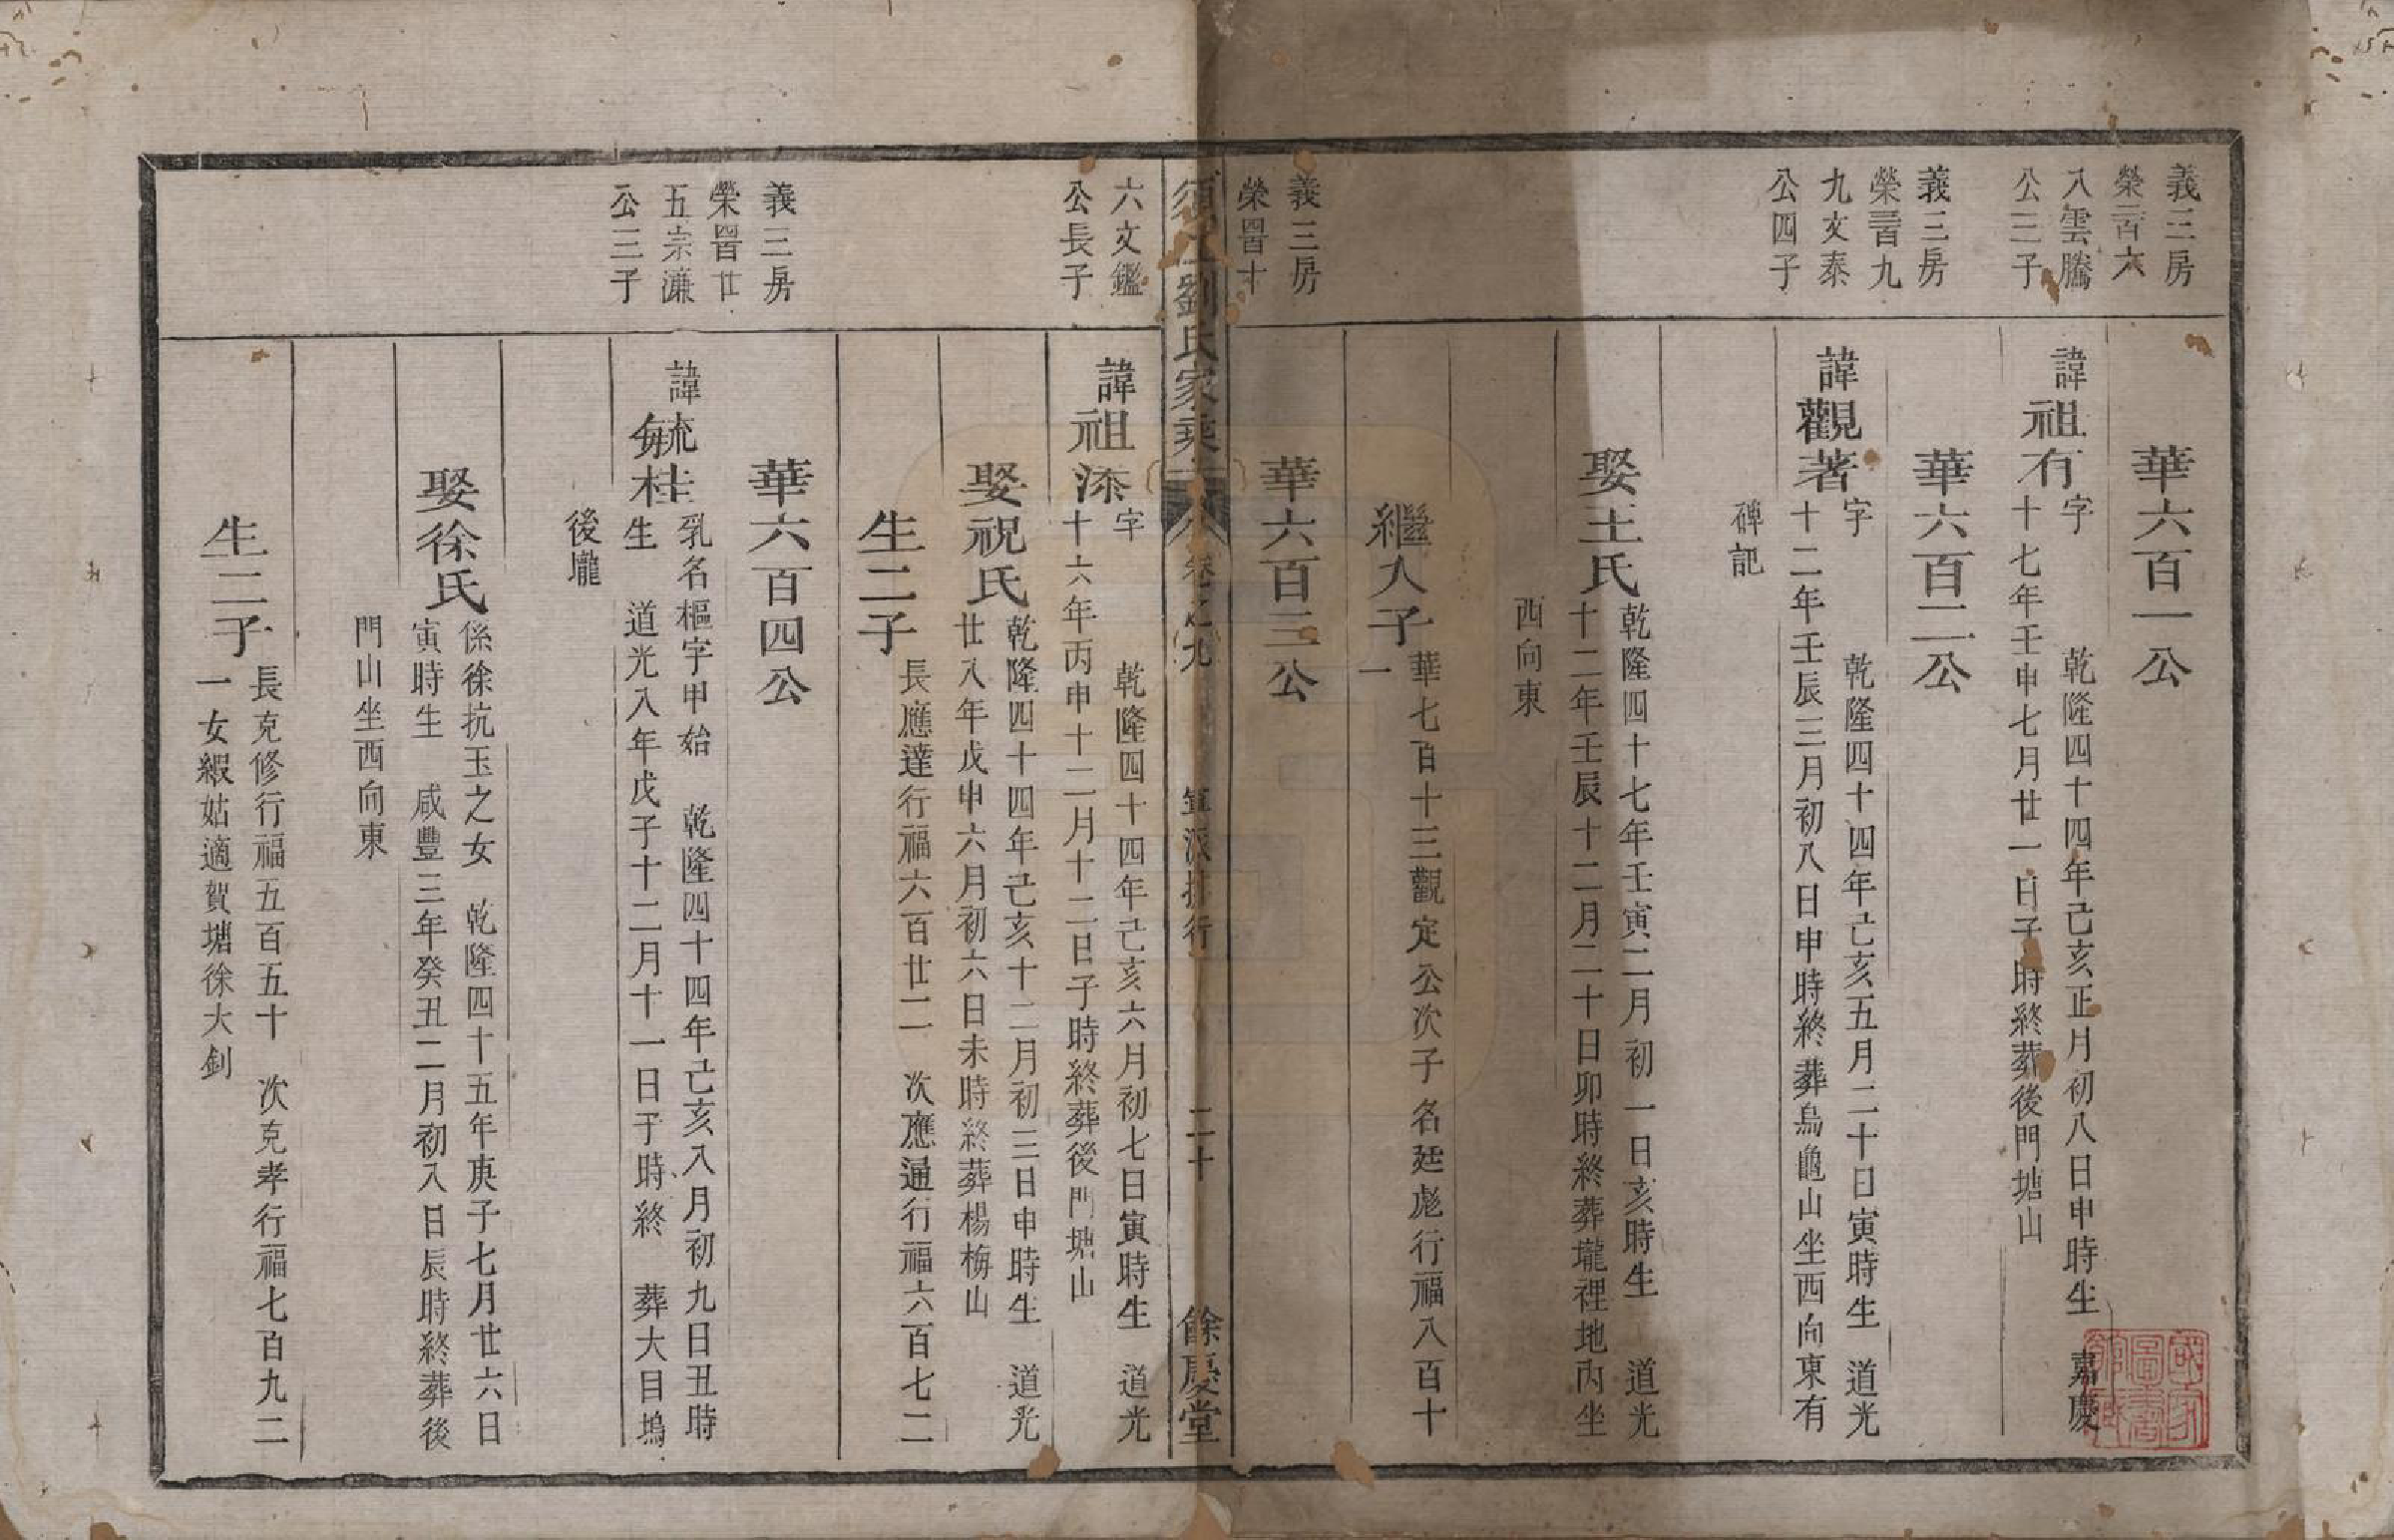 義三房
榮三百六
八雲騰
公三子
華六百一公
諱祖有
字 乾隆四十四年己亥正月初八日申時生 嘉慶
十七年壬申七月廿一日子時終葬後門塘山
義三房
榮三百九
九文泰
公四子
華六百二公
諱觀著
字 乾隆四十四年己亥五月二十日寅時生 道光
十二年壬辰三月初八日申時終葬烏龜山坐西向東有
碑記
娶王氏
乾隆四十七年壬寅二月初一日亥時生 道光
十二年壬辰十二月二十日卯時終葬壠裡地內坐
西向東
繼人子一
華七百十三觀定公次子名廷彪行福八百十
義三房
榮四百十
華六百三公
須江劉氏家乘
卷之九
筆派排行
二十
餘慶堂
六文鑑
公長子
諱祖添
字 乾隆四十四年己亥六月初七日寅時生 道光
十六年丙申十二月十二日子時終葬後門塘山
娶祝氏
乾隆四十四年己亥十二月初三日申時生 道光
廿八年戊申六月初六日未時終葬楊梅山
生二子
長應達行福六百廿二 次應通行福六百七二
義三房
榮四百廿
五宗濂
公三子
華六百四公
諱毓桂
乳名樞字甲始 乾隆四十四年己亥八月初九日丑時
生 道光八年戊子十二月十一日子時終 葬大目塢
後壠
娶徐氏
係徐抗玉之女 乾隆四十五年庚子七月廿六日
寅時生 咸豐三年癸丑二月初八日辰時終葬後
門山坐西向東
生二子
長克修行福五百五十 次克孝行福七百九二
一女緞姑適賀塘徐大釗